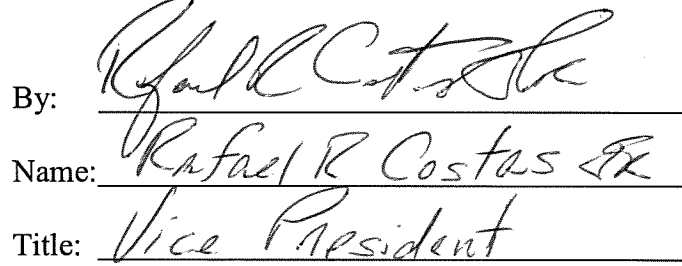 By: Rafael R Costas Jr
Name: Rafael R Costas JR
Title: Vice President